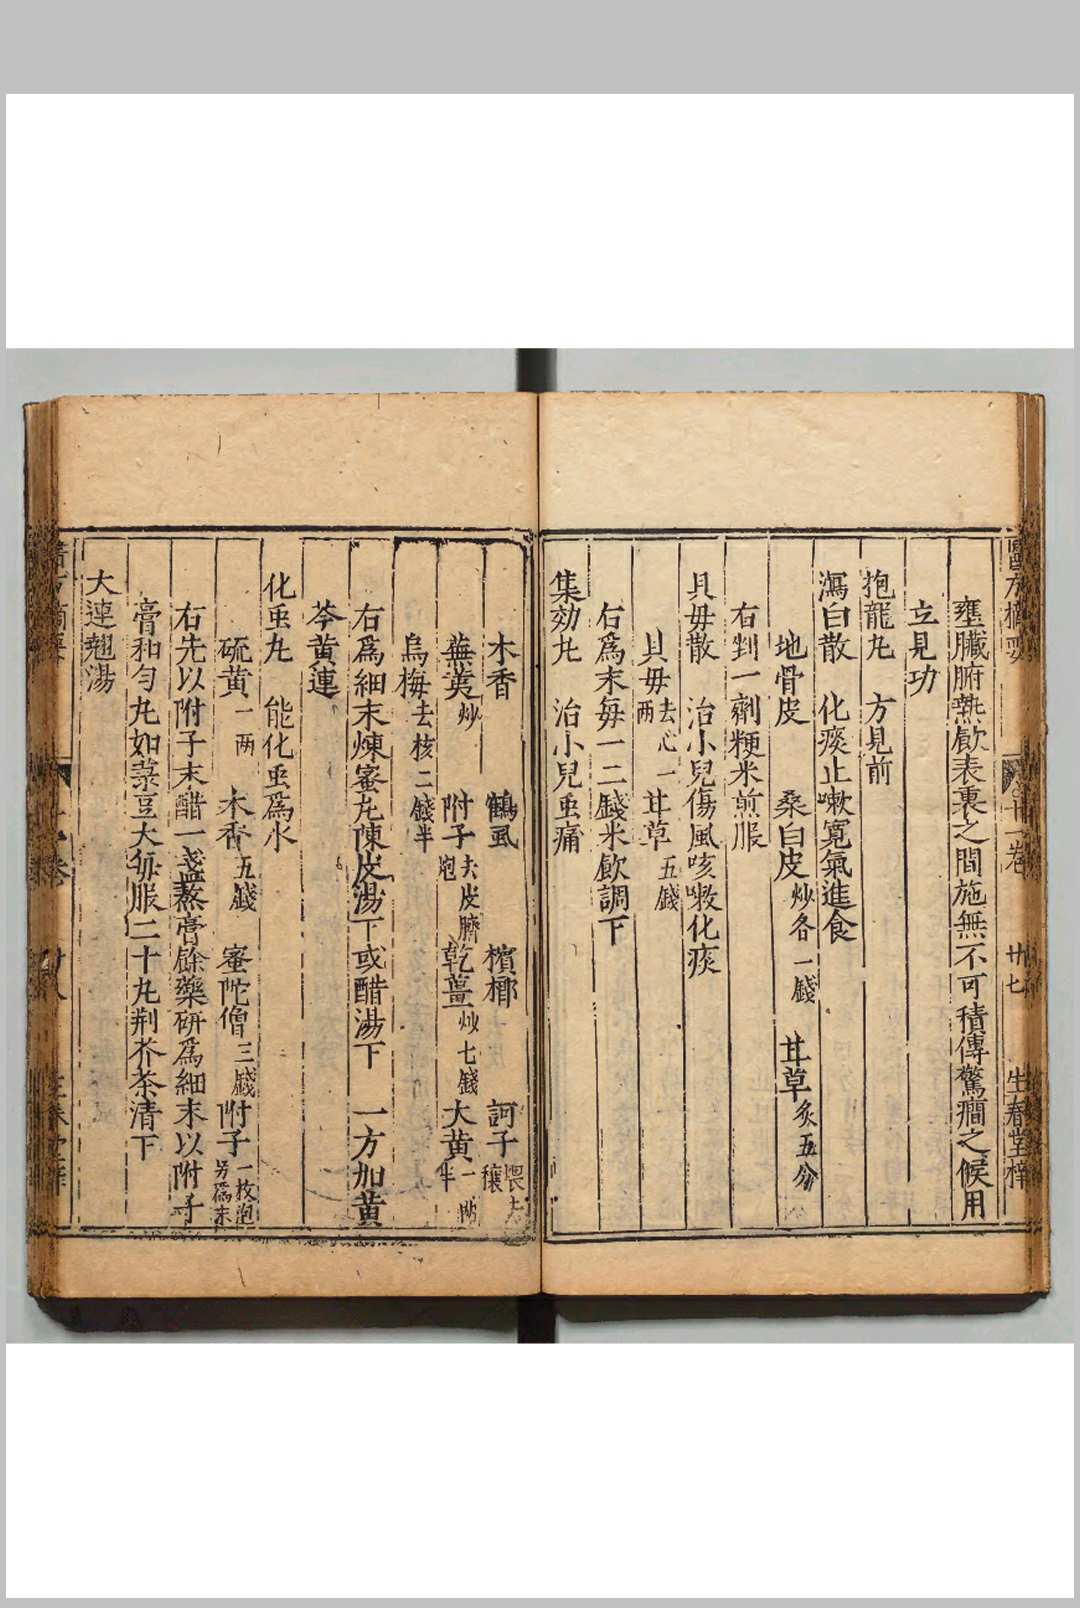 醫方摘要 十一卷 廿七 生春堂梓
壅臟腑熱歛表裏之間施無不可積傳驚癎之候用
立見功
抱龍丸 方見前
瀉白散 化痰止嗽寬氣進食
地骨皮 桑白皮炒各一錢 甘草炙五分
右剉一劑粳米煎服
貝母散 治小兒傷風咳嗽化痰
貝母去心一两 甘草五錢
右爲末每一二錢米飲調下
集効丸 治小兒虫痛
木香 鶴虱 檳榔 訶子煨去穰
蕪荑炒 附子去皮臍炮 乾薑炒七錢 大黄一两半
烏梅去核二錢半
右爲細末煉蜜丸陳皮湯下或醋湯下 一方加黄
芩黄連
化虫丸 能化虫爲水
硫黄一两 木香五錢 蜜陀僧三錢 附子一枚炮另爲末
右先以附子末醋一盞熬膏餘藥研爲細末以附子
膏和勻丸如菉豆大每服二十丸荆芥茶清下
大連翹湯